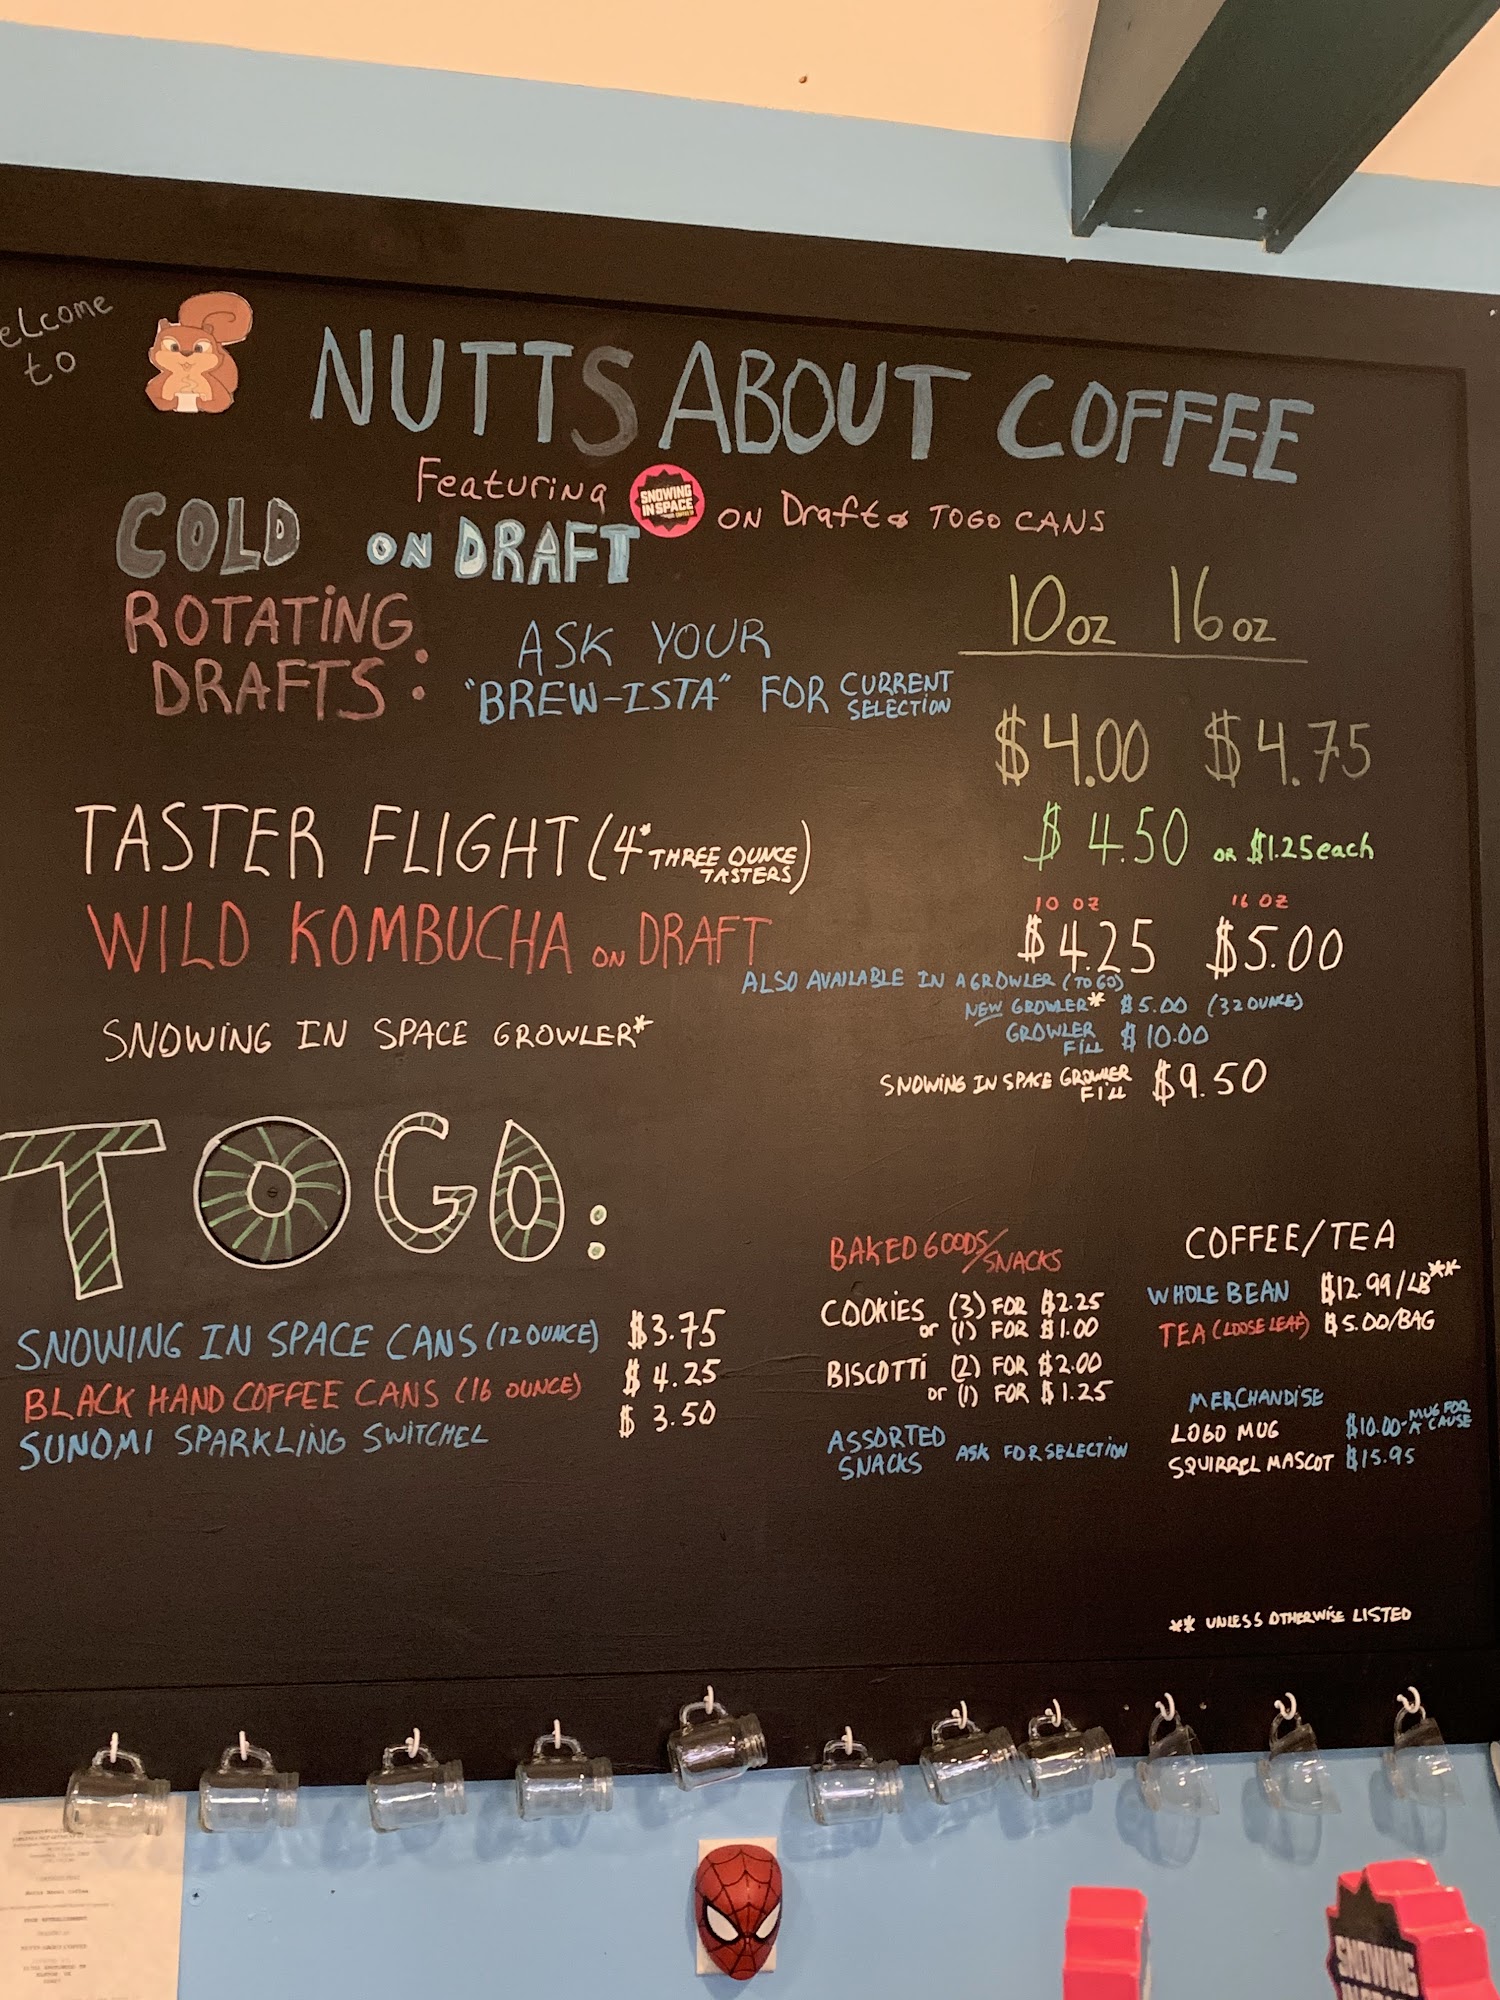 eLcome
to
NUTTS ABOUT COFFEE
Featuring SNOWING IN SPACE ON Draft & TOGO CANS
COLD ON DRAFT
10oz 16oz
ROTATING DRAFTS:
ASK YOUR
"BREW-ISTA" FOR CURRENT SELECTION
$4.00 $4.75
TASTER FLIGHT (4* THREE OUNCE TASTERS)
$4.50 OR $1.25 each
10 OZ 16 OZ
WILD KOMBUCHA ON DRAFT $4.25 $5.00
ALSO AVAILABLE IN A GROWLER (TO GO)
NEW GROWLER* $5.00 (32 OUNCE)
GROWLER FILL $10.00
SNOWING IN SPACE GROWLER*
SNOWING IN SPACE GROWLER FILL $9.50
TOGO:
SNOWING IN SPACE CANS (12 OUNCE) $3.75
BLACK HAND COFFEE CANS (16 OUNCE) $4.25
SUNOMI SPARKLING SWITCHEL $3.50
BAKED GOODS/SNACKS
COOKIES (3) FOR $2.25
or (1) FOR $1.00
BISCOTTI (2) FOR $2.00
or (1) FOR $1.25
ASSORTED SNACKS ASK FOR SELECTION
COFFEE/TEA
WHOLE BEAN $12.99/LB**
TEA (LOOSE LEAF) $5.00/BAG
MERCHANDISE
LOGO MUG $10.00-MUG FOR A CAUSE
SQUIRREL MASCOT $15.95
** UNLESS OTHERWISE LISTED
SNOWING